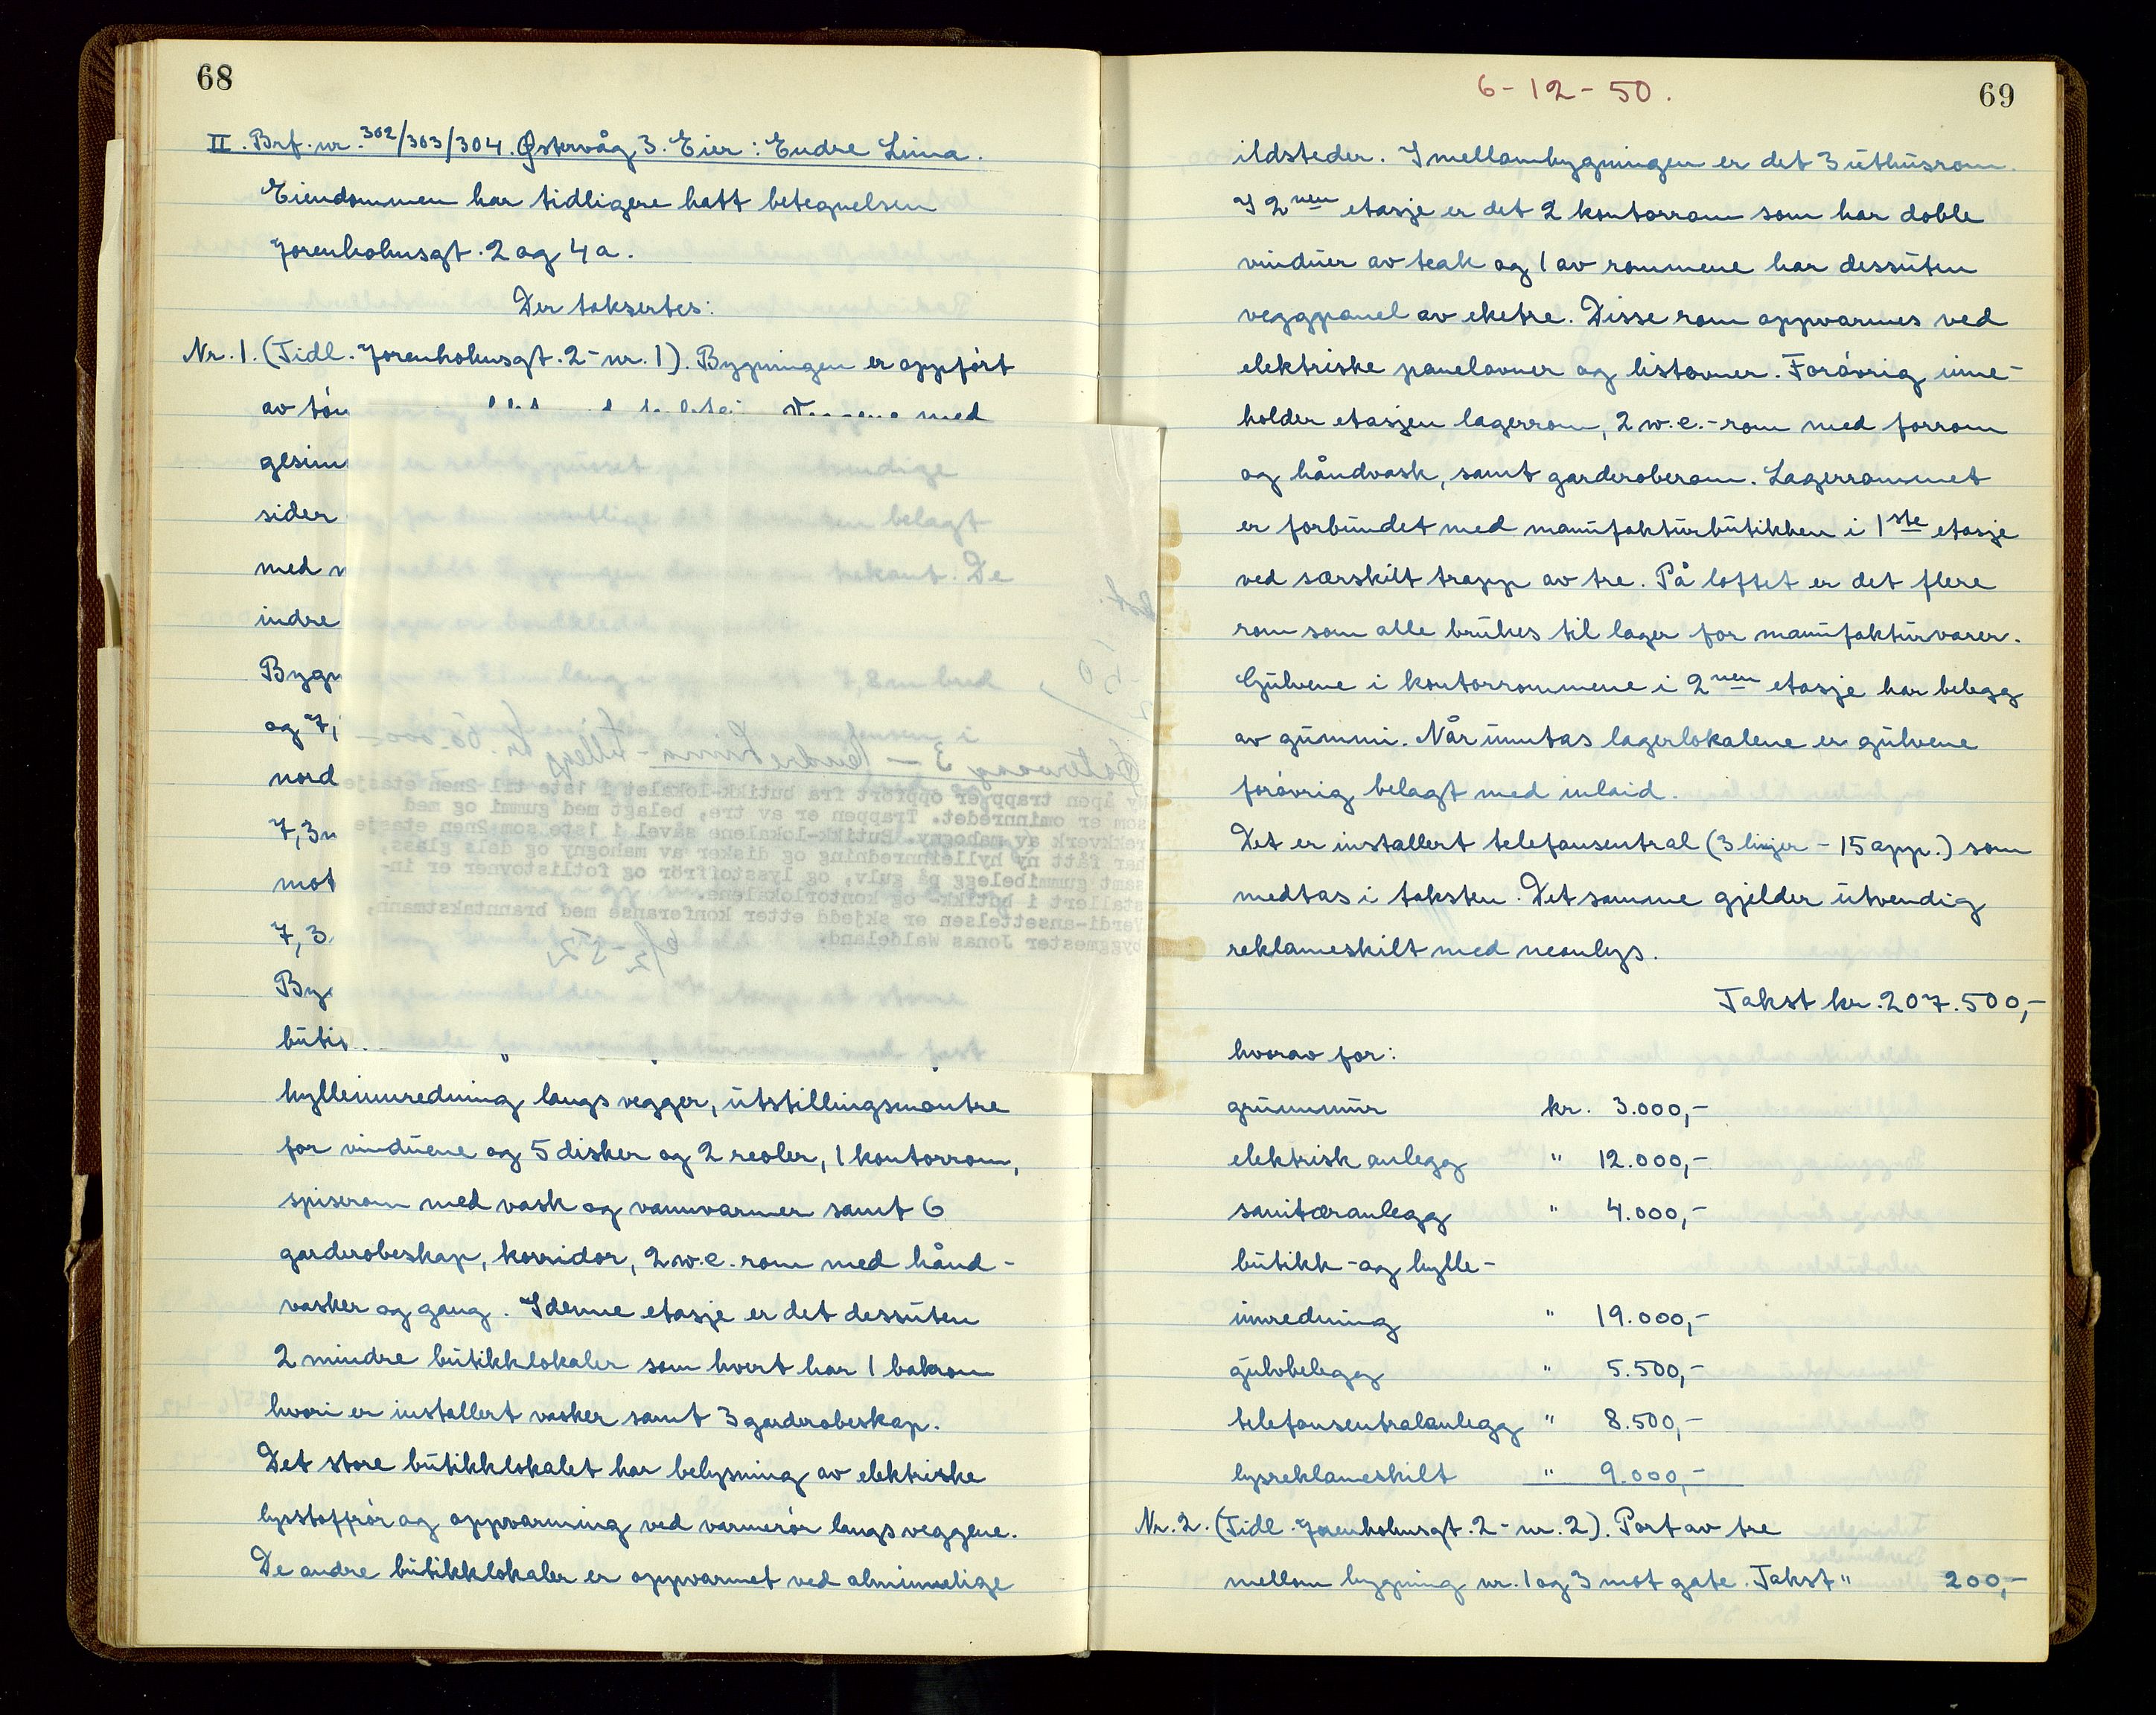 68
II. Brf. nr. 302/303/304. Østervåg 3. Eier: Endre Lima.
Eiendommen har tidligere hatt betegnelsen
Jorenholmsgt. 2 og 4a.
Der taksertes:
Nr. 1. (Tidl. Jorenholmsgt. 2 - nr. 1). Bygningen er oppført
av med
gesims
sider
med
indre
og 7,
nord
7,3
mot
7,3
hylleinnredning langs vegger, utstillingsmontre
for vinduene og 5 disker og 2 reoler, 1 kontorrom,
spiserom med vask og vannvarmer samt 6
garderobeskap, korridor, 2 w.c. rom med hånd-
vasker og gang. I denne etasje er det dessuten
2 mindre butikklokaler som hvert har 1 bakrom
hvori er installert vasker samt 3 garderobeskap.
Det store butikklokalet har belysning av elektriske
lysstoffrör og oppvarming ved varmerör langs veggene.
De andre butikklokaler er oppvarmet ved alminnelige
Østervaag 3 - Endre Lima - tillegg kr. 60.000
åpen trapp er oppført fra butikk-lokalet i 1ste til 2nen etasje
som er ominnredet. Trappen er av tre, belagt med gummi og med
rekkverk av mahogny. Butikk-lokalene såvel i 1ste som 2nen etasje
har fått ny hylleinnredning og disker av mahogny og dels glass,
samt gummibelegg på gulv, og lysstoffrör og fotlistovner er in-
stallert i butikk- og kontorlokalene.
Verdi-ansettelsen er skjedd etter konferanse med branntakstmann,
byggmester Jonas Waldeland.
6/2-52
6-12-50.
69
ildsteder. I mellombygningen er det 3 uthusrom.
I 2nen etasje er det 2 kontorrom som har doble
vinduer av teak og 1 av rommene har dessuten
veggpanel av eketre. Disse rom oppvarmes ved
elektriske panelovner og listovner. Forövrig inne-
holder etasjen lagerrom, 2 w.c.-rom med forrom
og håndvask, samt garderoberom. Lagerrommet
er forbundet med manufakturbutikken i 1ste etasje
ved særskilt trapp av tre. På loftet er det flere
rom som alle brukes til lager for manufakturvarer.
Gulvene i kontorrommene i 2nen etasje har belegg
av gummi. Når unntas lagerlokalene er gulvene
forövrig belagt med inlaid.
Det er installert telefonsentral (3 linjer - 15 app.) som
medtas i taksten. Det samme gjelder utvendig
reklameskilt med neonlys.
Takst kr. 207.500,-
hvorav for:
grunnmur kr. 3.000,-
elektrisk anlegg " 12.000,-
sanitæranlegg " 4.000,-
butikk- og hylle-
innredning " 19.000,-
gulvbelegg " 5.500,-
telefonsentralanlegg " 8.500,-
lysreklameskilt " 9.000,-
Nr. 2. (Tidl. Jorenholmsgt. 2 - nr. 2). Port av tre
mellom bygning nr. 1 og 3 mot gate. Takst " 200,-